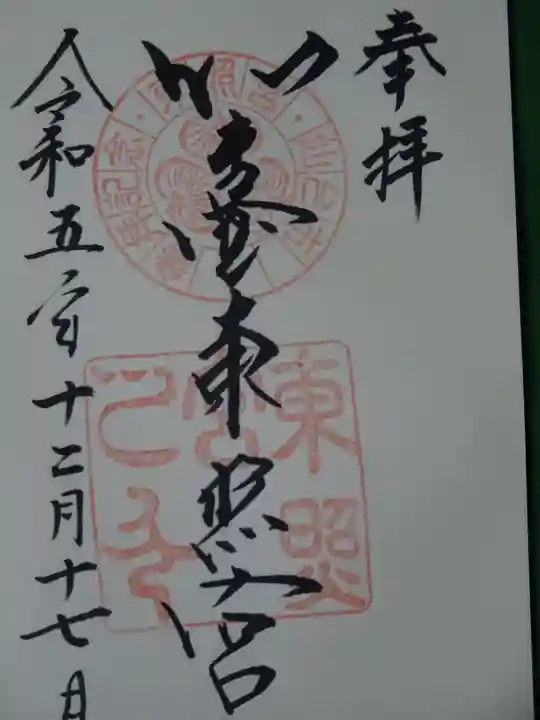 奉拝
仙臺東照宮
東照宮之印
令和五年十二月十七日